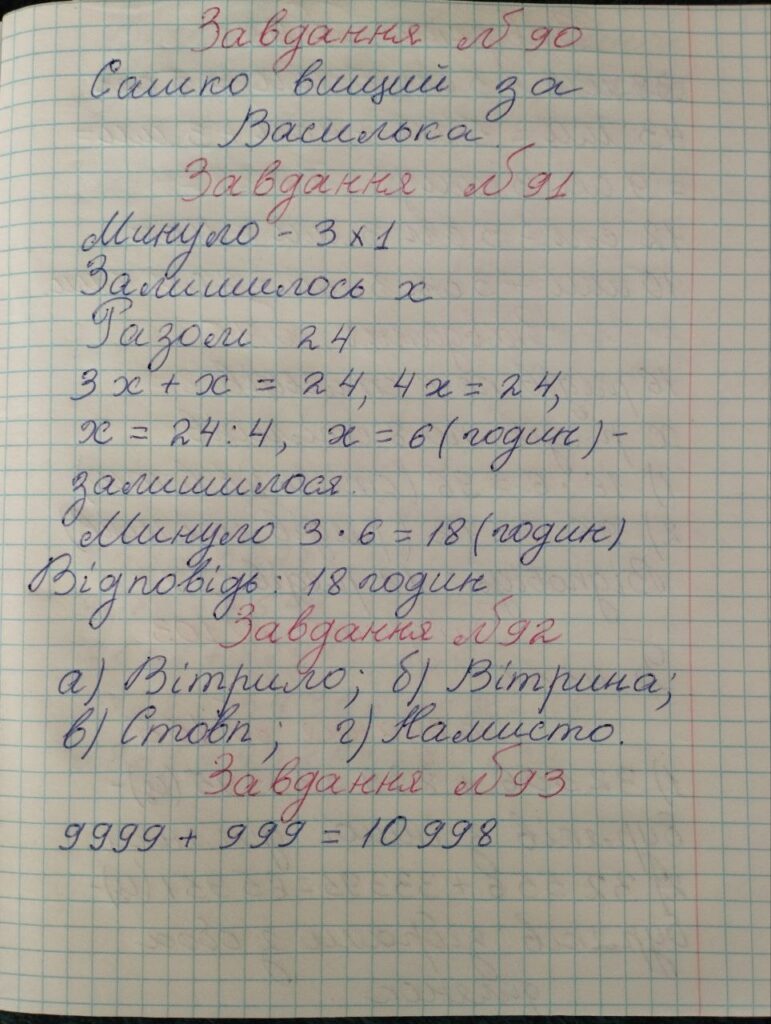 Завдання №90
Сашко вищий за
Василька
Завдання №91
Минуло - 3 х 1
Залишилось х
Разом 24
3х + х = 24, 4х = 24,
х = 24 : 4, х = 6 (годин) -
залишилося.
Минуло 3 · 6 = 18 (годин)
Відповідь: 18 годин
Завдання №92
а) Вітрило; б) Вітрина;
в) Стовп; г) Намисто.
Завдання №93
9999 + 999 = 10 998